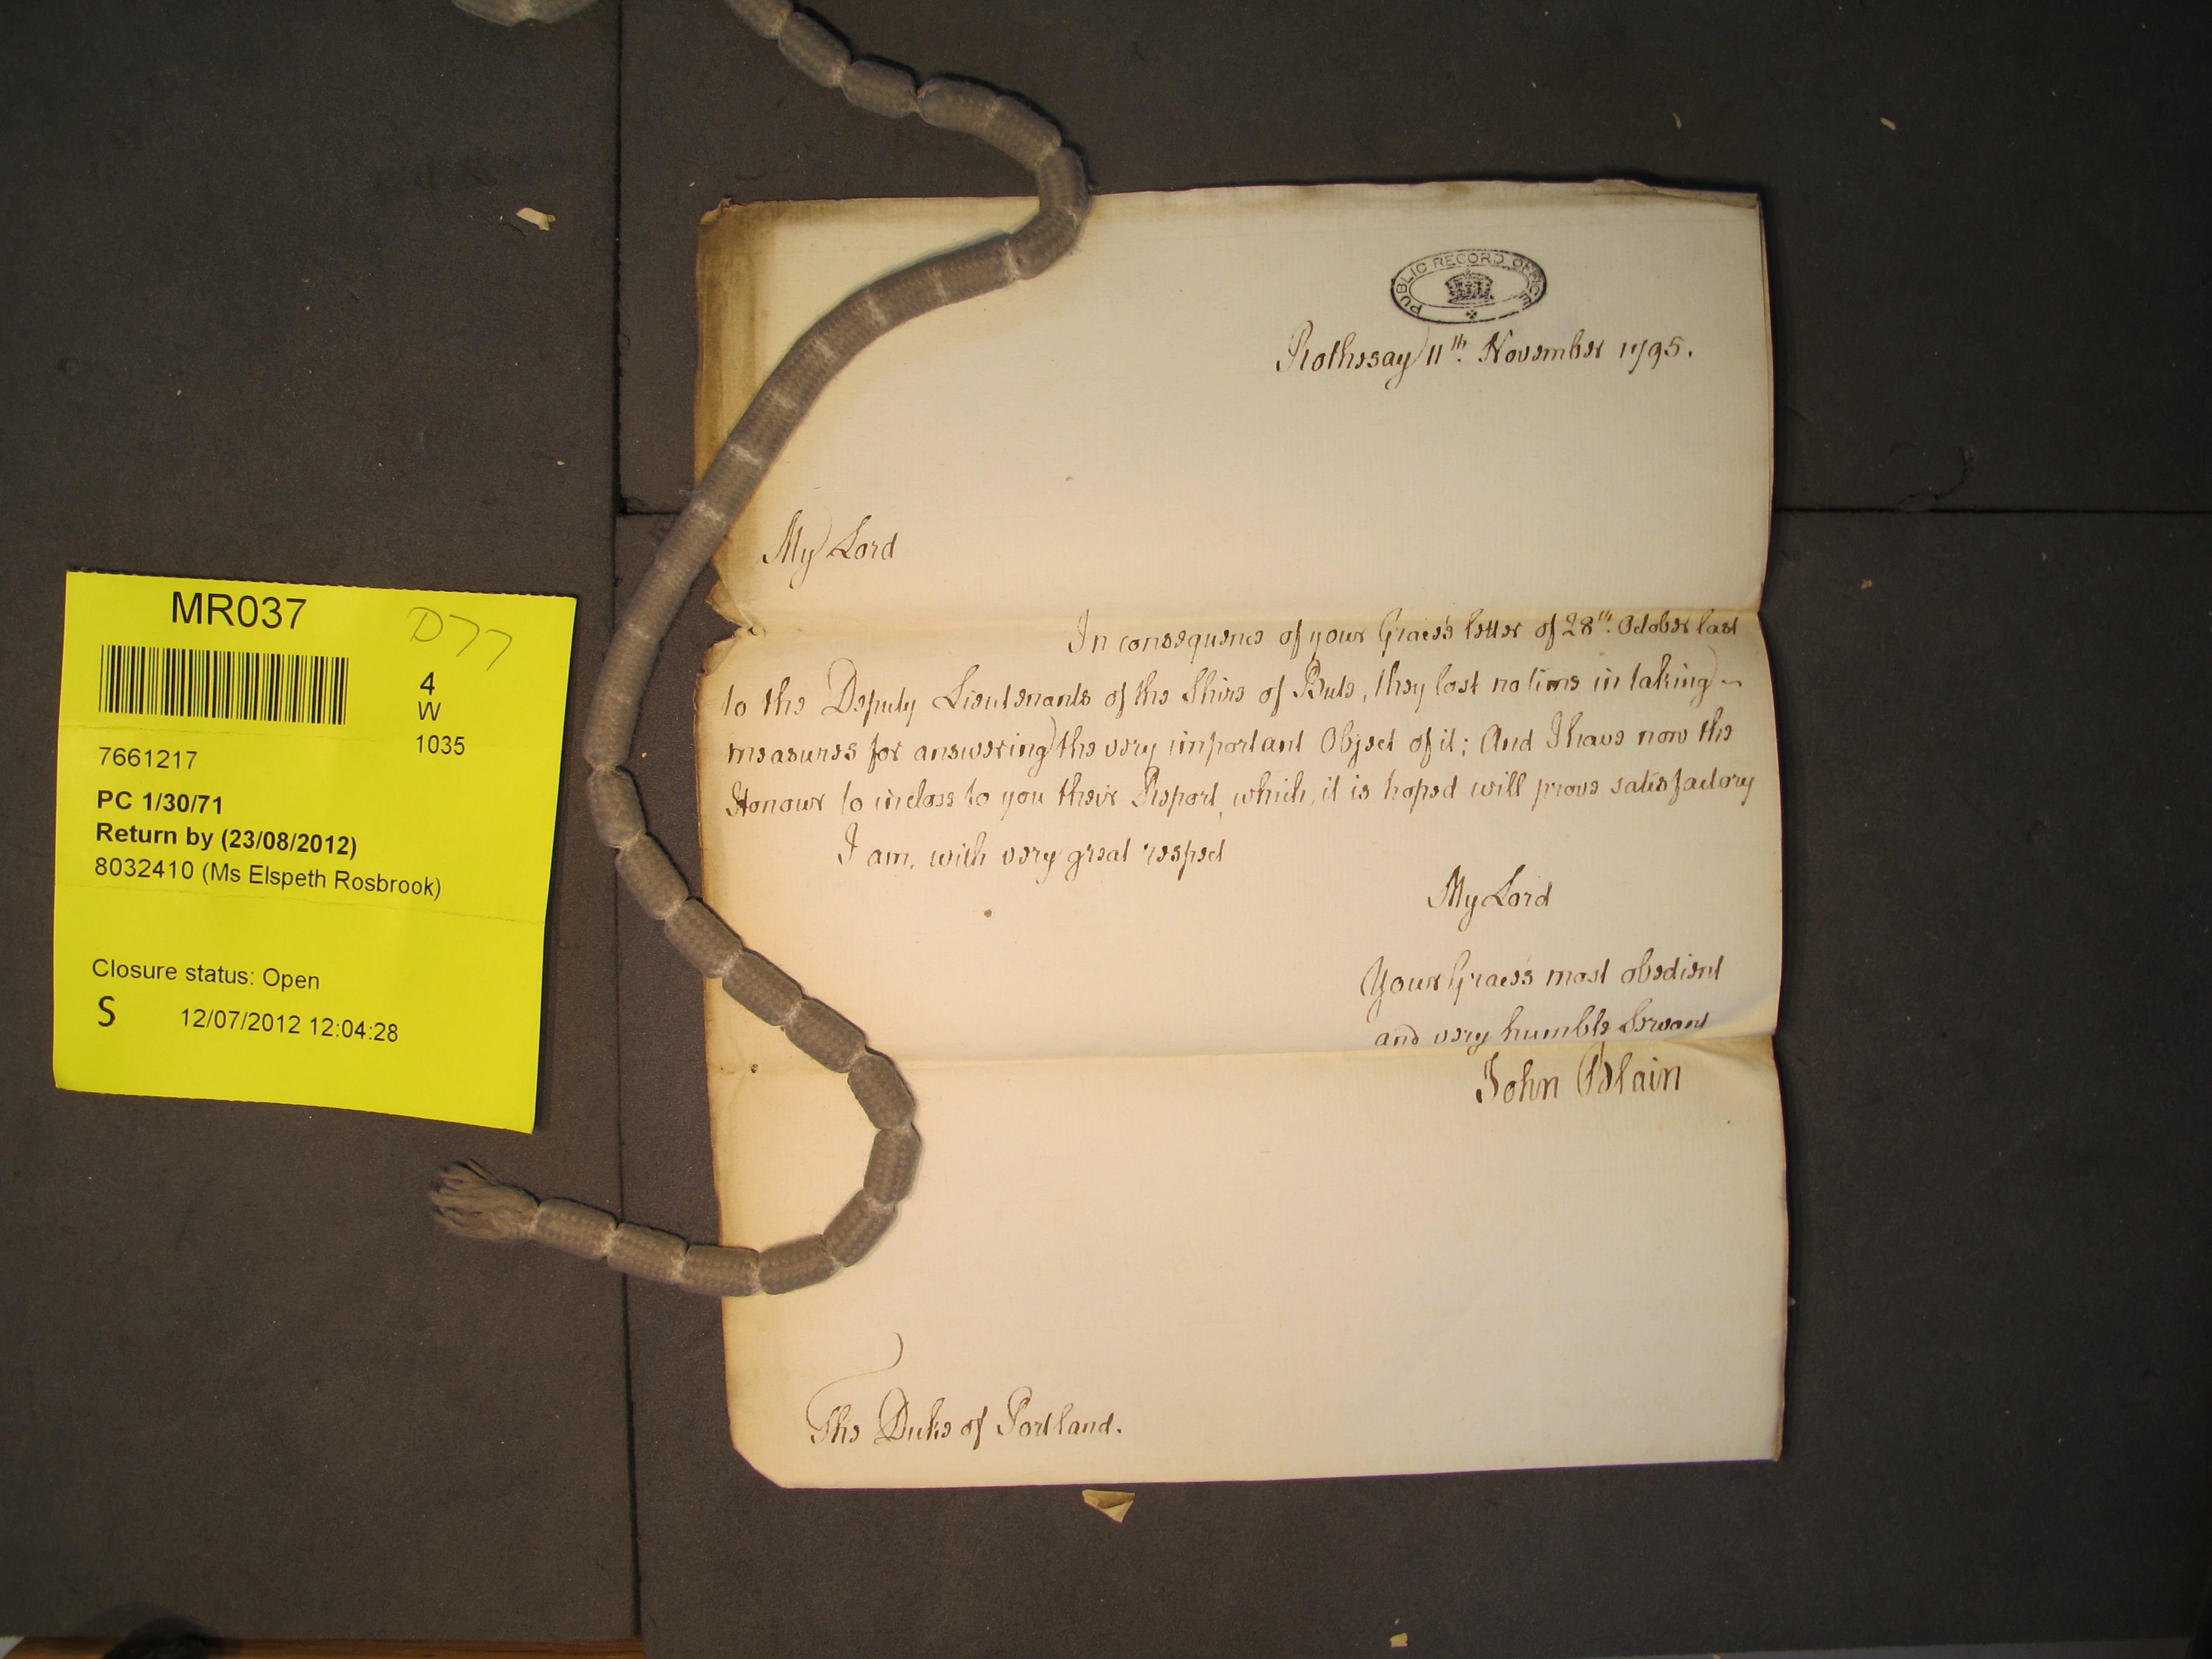 MR037
D77
4
W
1035
7661217
PC 1/30/71
Return by (23/08/2012)
8032410 (Ms Elspeth Rosbrook)
Closure status: Open
S 12/07/2012 12:04:28
PUBLIC RECORD OFFICE
Rothesay 11th. November 1795.
My Lord
In consequence of your Grace's letter of 28th. October last
to the Deputy Lieutenants of the Shire of Bute, they lost no time in taking ~
measures for answering the very important Object of it; And I have now the
Honour to inclose to you their Report, which, it is hoped will prove satisfactory
I am, with very great respect
My Lord
Your Grace's most obedient
and very humble Servant
John Blain
The Duke of Portland.